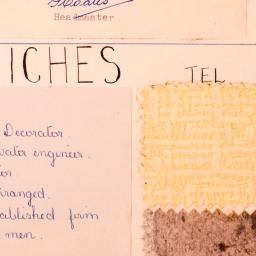 Headmaster
ICHES
TEL
Decorator.
water engineer.
tor.
rranged.
ablished firm
men.